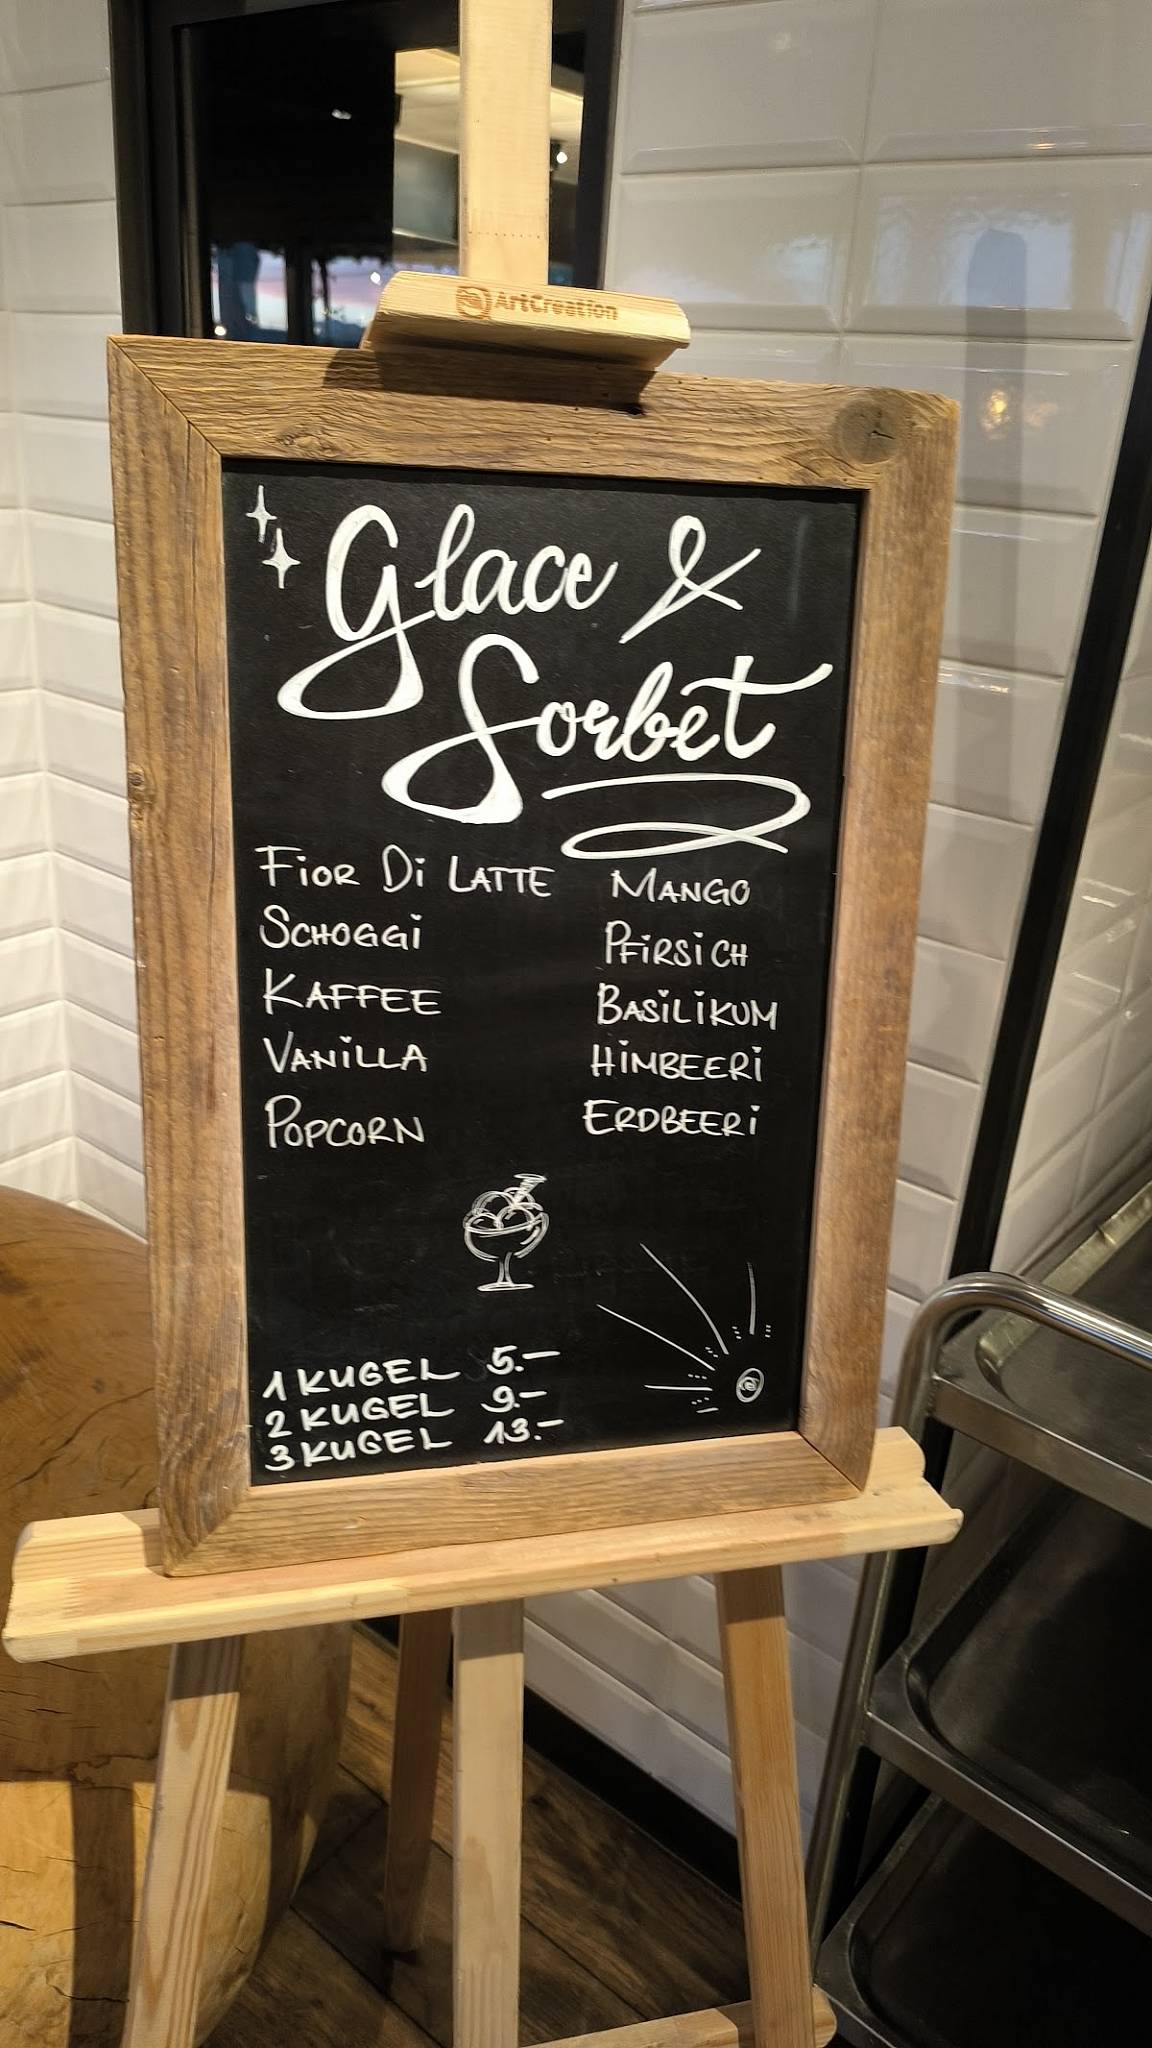 ArtCreation
Glace &
Sorbet
Fior Di Latte
Schoggi
Kaffee
Vanilla
Popcorn
Mango
Pfirsich
Basilikum
Himbeeri
Erdbeeri
1 KUGEL 5.–
2 KUGEL 9.–
3 KUGEL 13.–